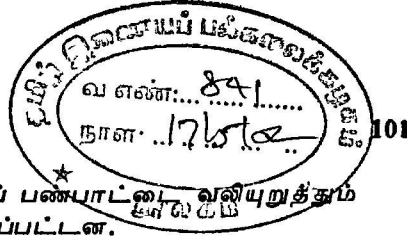 தமிழ் இணையப் பல்கலைக்கழகம்
வ எண்:... 841 ......
நாள்· ..17/5/02 ..
101
பண்பாட்டை வலியுறுத்தும்
நூலகம்
ப்பட்டன.